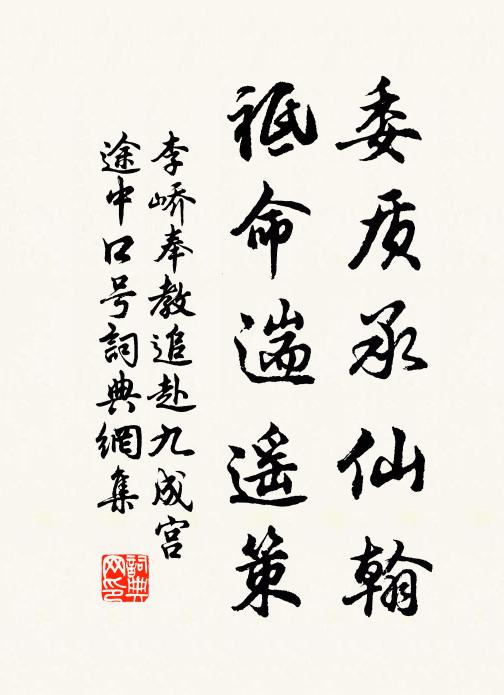 委质承仙翰
祗命遄遥策
李峤奉教追赴九成宫
途中口号詞典網集
詞典
网印